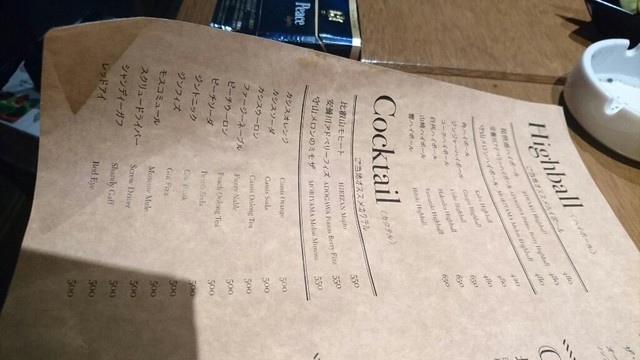 Peace
Highball (ハイボール)
ご当地オススメハイボール
480
480
守山メロンハイボール MORIYAMA Melon Highball 480
角ハイボール Kaku Highball 480
ジンジャーハイボール Ginger Highball 480
コークハイボール Coke Highball 480
白州ハイボール Hakushu Highball 650
山崎ハイボール Yamazaki Highball 650
響ハイボール Hibiki Highball 650
Cocktail (カクテル)
ご当地オススメカクテル
比叡山モヒート HIEIZAN Mojito 550
安曇川アドベリーフィズ ADOGAWA Boysen Berry Fizz 550
守山メロンのミモザ MORIYAMA Melon Mimosa 550
カシスオレンジ Cassis Orange 500
カシスソーダ Cassis Soda 500
カシスウーロン Cassis Oolong Tea 500
ファジーネーブル Fuzzy Navle 500
ピーチウーロン Peach Oolong Tea 500
ピーチソーダ Peach Soda 500
ジントニック Gin Tonic 500
ジンフィズ Gin Fizz 500
モスコミュール Moscow Mule 500
スクリュードライバー Screw Driver 500
シャンディーガフ Shandy Gaff 500
レッドアイ Red Eye 500